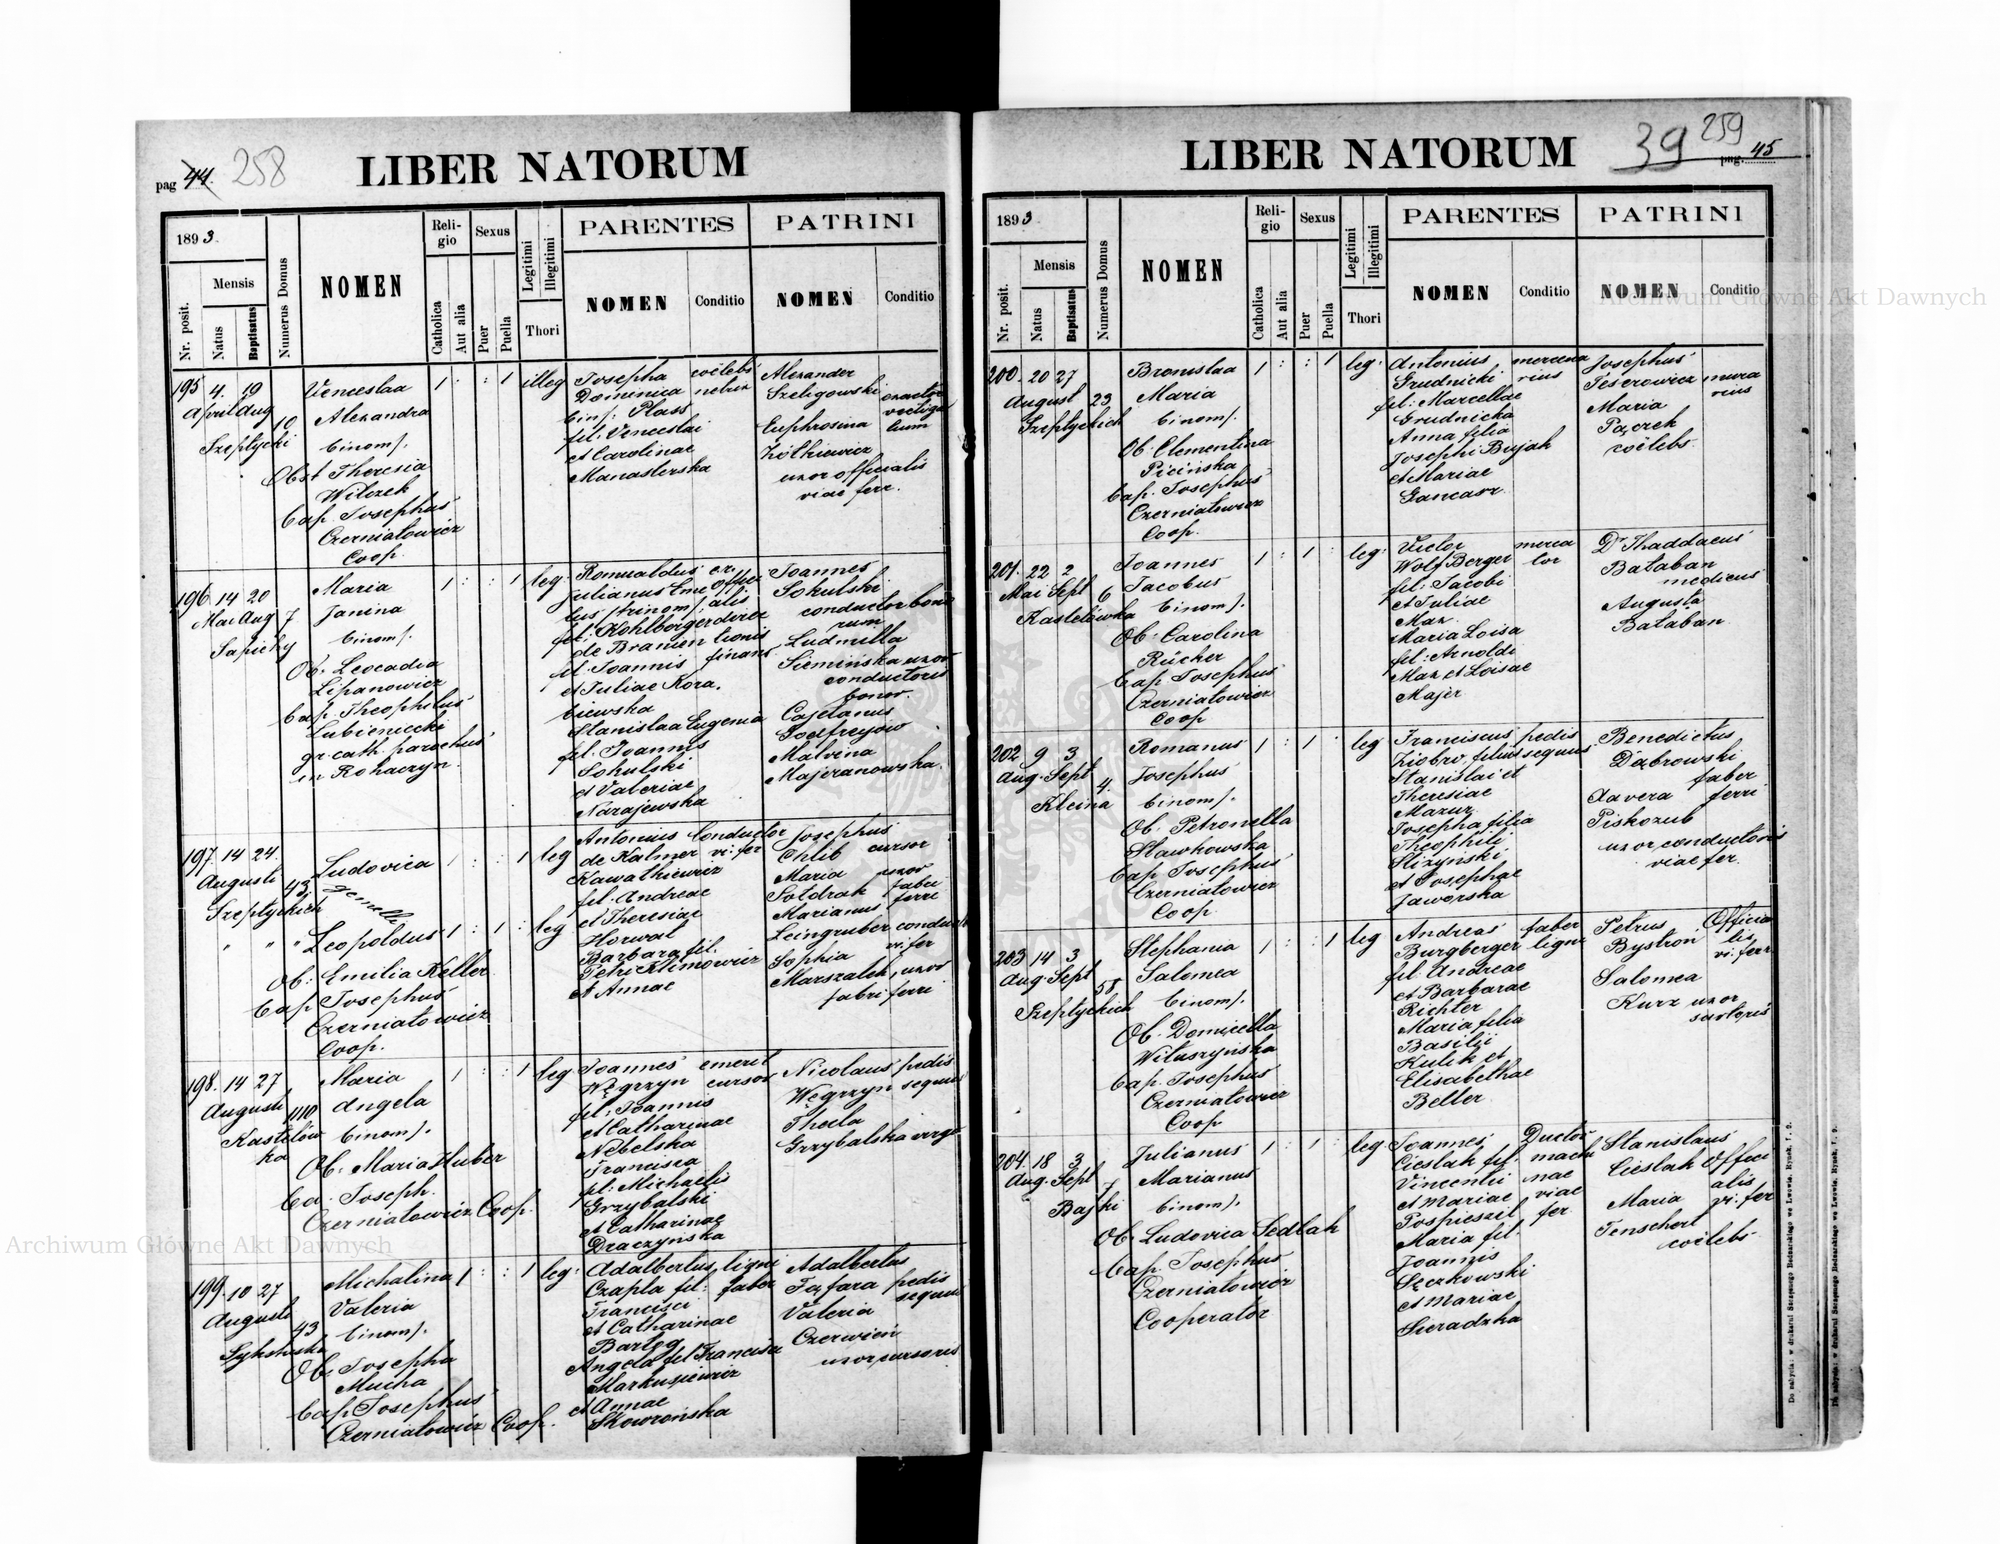 pag 44. 258
LIBER NATORUM
1893.
Nr. posit.
Mensis
Natus
Baptisatus
Numerus Domus
NOMEN
Religio
Catholica
Aut alia
Sexus
Puer
Puella
Legitimi
Illegitimi
Thori
PARENTES
NOMEN
Conditio
PATRINI
NOMEN
Conditio
195 4. 19
April Aug 10
Szeptycki
Venceslaa
Alexandra
binom/.
Obst Theresia
Wilczek
bap. Josephus
Czerniatowicz
Coop.
1 : : 1 illeg
Josepha coelebs
Dominica netrix
bin/: Plass
fil: Venceslai
et Carolinae
Manasterska
Alexander
Szeligowski exactor
vectiga
lium
Euphrosina
Żółkiewicz
uxor officialis
viae ferr.
196 14 20
Mai Aug 7
Sapiehy
Maria
Janina
binom/.
Ob: Leocadia
Lipanowicz
bap. Theophilus
Lubieniecki
gr. cath. parochus
in Rohaczyn.
1 : : 1 leg
Romualdus
Julianus
fil: Joannis
et Juliae Kora.
biewska
Stanislaa Eugenia
fil. Joannis
Sokulski
et Valeriae
Narajewska
Joannes
Sokulski
conductor bono
rum
Ludmilla
Siemińska uxor
conductoris
bonor.
Cajetanus
Godfrejow
Malvina
Majeranowska.
197. 14 24.
Augusti 43
Szeptyckich
Ludovica
gemelli
Leopoldus
Ob: Emilia Keller
bap Josephus
Czerniatowicz
Coop.
1 : : 1 leg
1 : 1 : leg
Antonius Conductor
de Kalmer vi: fer
Kawalkiewicz
fil. Andreae
et Theresiae
Horwat
Barbara fil.
Petri Klimowicz
et Annae
Josephus
Chlib cursor
Maria uxor
Soldrak fabri
ferri
Marianus
Leingruber conduct
vi: fer
Sophia
Marszalek, uxor
fabri ferri
198. 14 27
Augusti 110
Kastelów
ka
Maria
Angela
binom/.
Ob: Maria Huber
Ba. Joseph.
Czerniatowicz Coop.
1 : : 1 leg
Joannes emerit
Węgrzyn cursor
fil: Joannis
et Catharinae
Nebelska
Francisca
fil: Michaelis
Grzybalski
et Catharinae
Draczyńska
Nicolaus pedis
Węgrzyn sequus
Thecla
Grzybalska virgo
199. 10 27
Augusti 43
Sykstuska
Michalina
Valeria
binom/.
Ob: Josepha
Mucha
bap Josephus
Czerniatowicz Coop.
1 : : 1 leg:
Adalbertus ligni
Czapla fil: faber
Francisci
et Catharinae
Barteg
Angela fil Francisci
Markusiewicz
et Annae
Skowrońska
Adalbertus
Tafara pedis
sequus
Valeria
Czerwień
uxor cursoris
LIBER NATORUM
39 259
pag. 45
1893
Nr. posit.
Mensis
Natus
Baptisatus
Numerus Domus
NOMEN
Religio
Catholica
Aut alia
Sexus
Puer
Puella
Legitimi
Illegitimi
Thori
PARENTES
NOMEN
Conditio
PATRINI
NOMEN
Conditio
200. 20 27
August 23
Szeptyckich
Bronislaa
Maria
binom/.
Ob: Clementina
Picińska
bap. Josephus
Czerniatowicz
Coop.
1 : : 1 leg:
Antonius mercena
Grudnicki rius
fil: Marcellae
Grudnicka
Anna filia
Josephi Bujak
et Mariae
Gancarz
Josephus
Teserowicz mura
rius
Maria
Pączek
coelebs
201. 22 2
Mai Sept 6
Kastelówka
Joannes
Jacobus
binom/.
Ob: Carolina
Rücher
bap Josephus
Czerniatowicz
Coop
1 : 1 : leg:
Victor merca
Wolf Berger tor
fil: Jacobi
et Juliae
Max
Maria Loisa
fil: Arnoldi
Max et Loisae
Majer
Dr Thaddaeus
Bataban
medicus
Augusta
Bataban
202 9 3
Aug. Sept 4.
Kleina
Romanus
Josephus
binom/.
Ob: Petronella
Slawkowska
bap Josephus
Czerniatowicz
Coop
1 : 1 leg
Franciscus pedis
Ziobro, filius sequus
Stanislai et
Theresiae
Mazur
Josepha filia
Theophili
Sliżyński
et Josephae
Jaworska
Benedictus
Dąbrowski
faber
ferri
Xavera
Piskozub
uxor conductoris
viae fer.
203 14 3
Aug. Sept 58
Szeptyckich
Stephania
Salomea
binom/.
Ob: Domicella
Wituszyńska
bap. Josephus
Czerniatowicz
Coop
1 : : 1 leg
Andreas faber
Burgberger ligni
fil: Andreae
et Barbarae
Richter
Maria filia
Basilii
Kulik et
Elisabethae
Beller
Petrus Officia
Bystroń lis
vi: ferr.
Salomea
Kurz uxor
sartoris
204. 18 3
Aug. Sept
Bajki
Julianus
Marianus
binom/.
Ob: Ludovica Sedlak
bap Josephus
Czerniatowicz
Cooperator
1 : 1 : leg
Joannes Ductor
Cieslak fil: machi
Vincentii nae
et Mariae viae
Pospieszil fer
Maria fil.
Joannis
Łęczkowski
et Mariae
Sieradzka
Stanislaus
Cieslak Offici
alis
vi: fer
Maria
Tenschert
coelebs
Archiwum Główne Akt Dawnych
Archiwum Główne Akt Dawnych